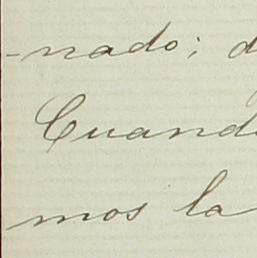 -nado; d
Cuand
mos la